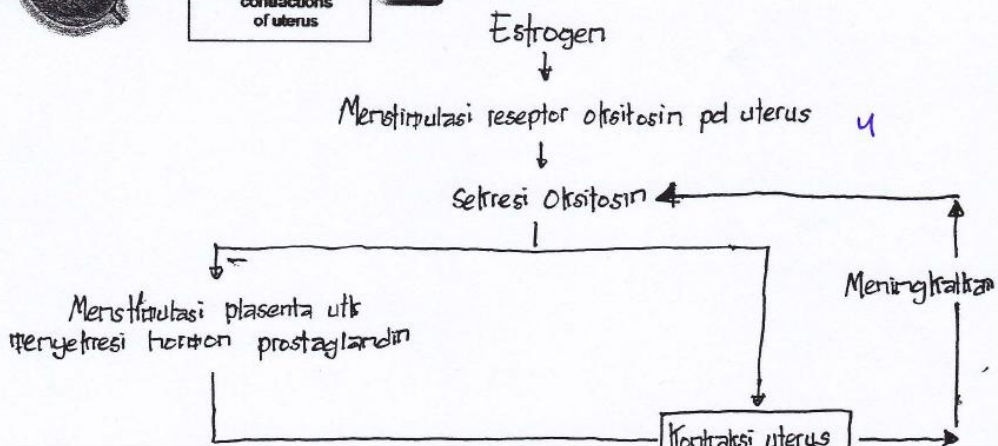 contractions
of uterus
Estrogen
Menstimulasi reseptor oksitosin pd uterus 4
Sekresi Oksitosin
Meningkatkan
Menstimulasi plasenta utk
menyekresi hormon prostaglandin
Kontraksi uterus